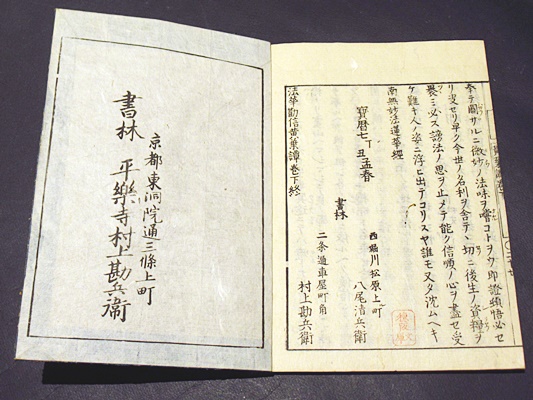 奉テ圖サルニ微妙ノ法味ヲ嘗コトヲウ即證頓悟必セ
リ早ク今世ノ名利ヲ舍テヽ切ニ後生ノ資糧ヲ
必ス謗法ノ思ヲ止メテ能ク信順ノ心ヲ盡セ受
ケ難キ人ノ ニ浮ヒ出テコリスヤ誰モ又タ沈ムヘキ
南無妙法蓮華經
寶曆七丁丑孟春
書林
西堀川松原上町
八尾清兵衛
二条通車屋町角
村上勘兵衛
法華勸信黄葉譚卷下終
京都東洞院通三條上町
書林 平樂寺村上勘兵衛